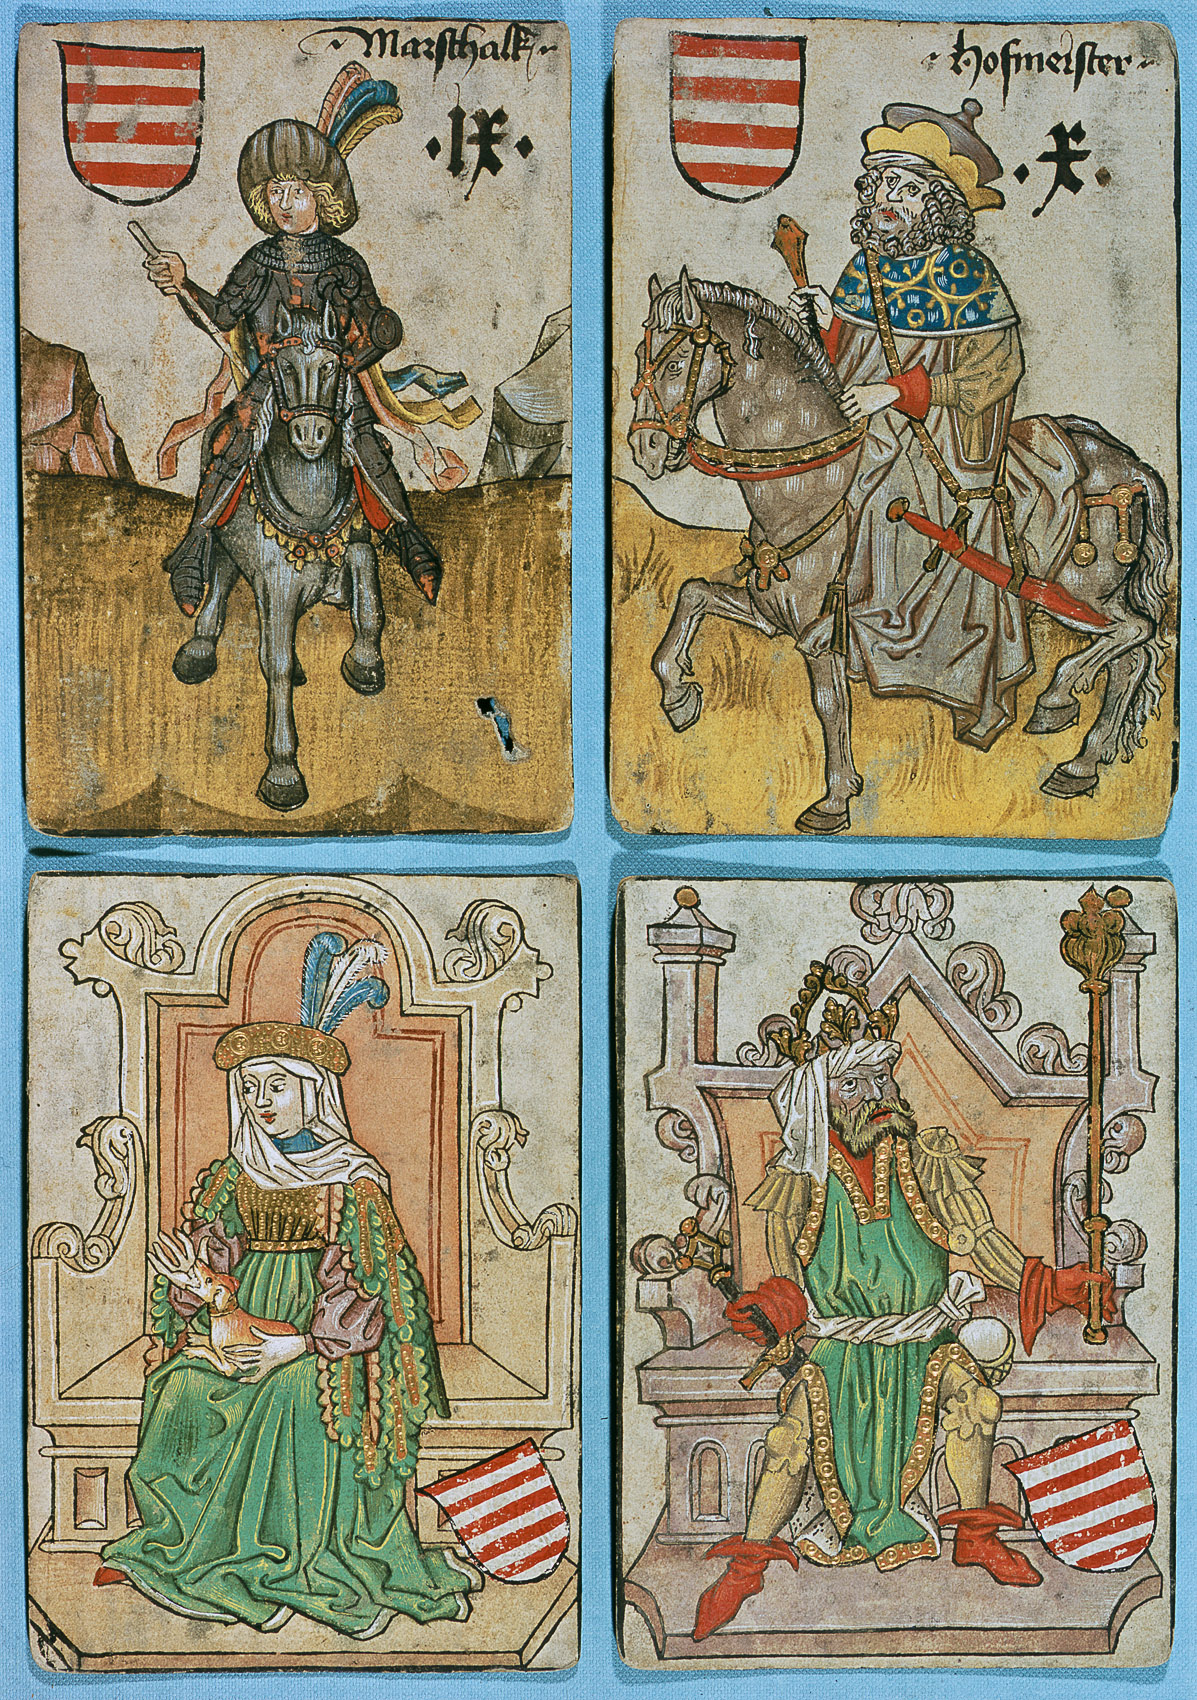 · Marschalk ·
· IX ·
· Hofmeister ·
· X ·